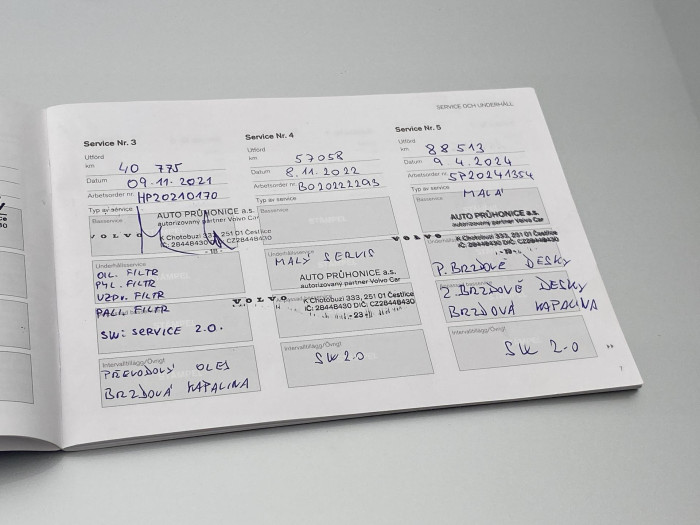 SERVICE OCH UNDERHÅLL
Service Nr. 3
Utförd
km 40 775
Datum 09.11.2021
Arbetsorder nr. HP20210170
Typ av service
Basservice
AUTO PRŮHONICE a.s.
autorizovaný partner Volvo Car
VOLVO K Chotobuzi 333, 251 01 Čestlice
IČ: 28448430 DIČ: CZ28448430
- 18 -
Underhållsservice
OIL. FILTR
PYL. FILTR
VZDU. FILTR
PALI. FILTR
SW: SERVICE 2.0.
Intervalltillägg/Övrigt
PŘEVODOVÝ OLEJ
BRZDOVÁ KAPALINA
Service Nr. 4
Utförd
km 57058
Datum 8.11.2022
Arbetsorder nr. BO20222293
Typ av service
Basservice
Underhållsservice
MALÝ SERVIS
AUTO PRŮHONICE a.s.
autorizovaný partner Volvo Car
VOLVO K Chotobuzi 333, 251 01 Čestlice
IČ: 28448430 DIČ: CZ28448430
- 23 -
Intervalltillägg/Övrigt
SW 2.0
Service Nr. 5
Utförd
km 88513
Datum 9.4.2024
Arbetsorder nr. SP20241354
Typ av service
MALÁ
Basservice
AUTO PRŮHONICE a.s.
autorizovaný partner Volvo Car
VOLVO K Chotobuzi 333, 251 01 Čestlice
IČ: 28448430 DIČ: CZ28448430
P. BRZDOVÉ DESKY
Z. BRZDOVÉ DESKY
BRZDOVÁ KAPALINA
Intervalltillägg/Övrigt
SW 2.0
7